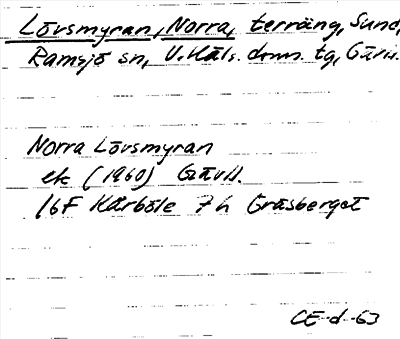 Lövsmyran, Norra, terräng, Sund,
Ramsjö sn, V. Häls. doms. tg, Gävle.
Norra Lövsmyran
ek (1960) Gävll.
16F Kårböle 7h Gräsberget
CE-d-63